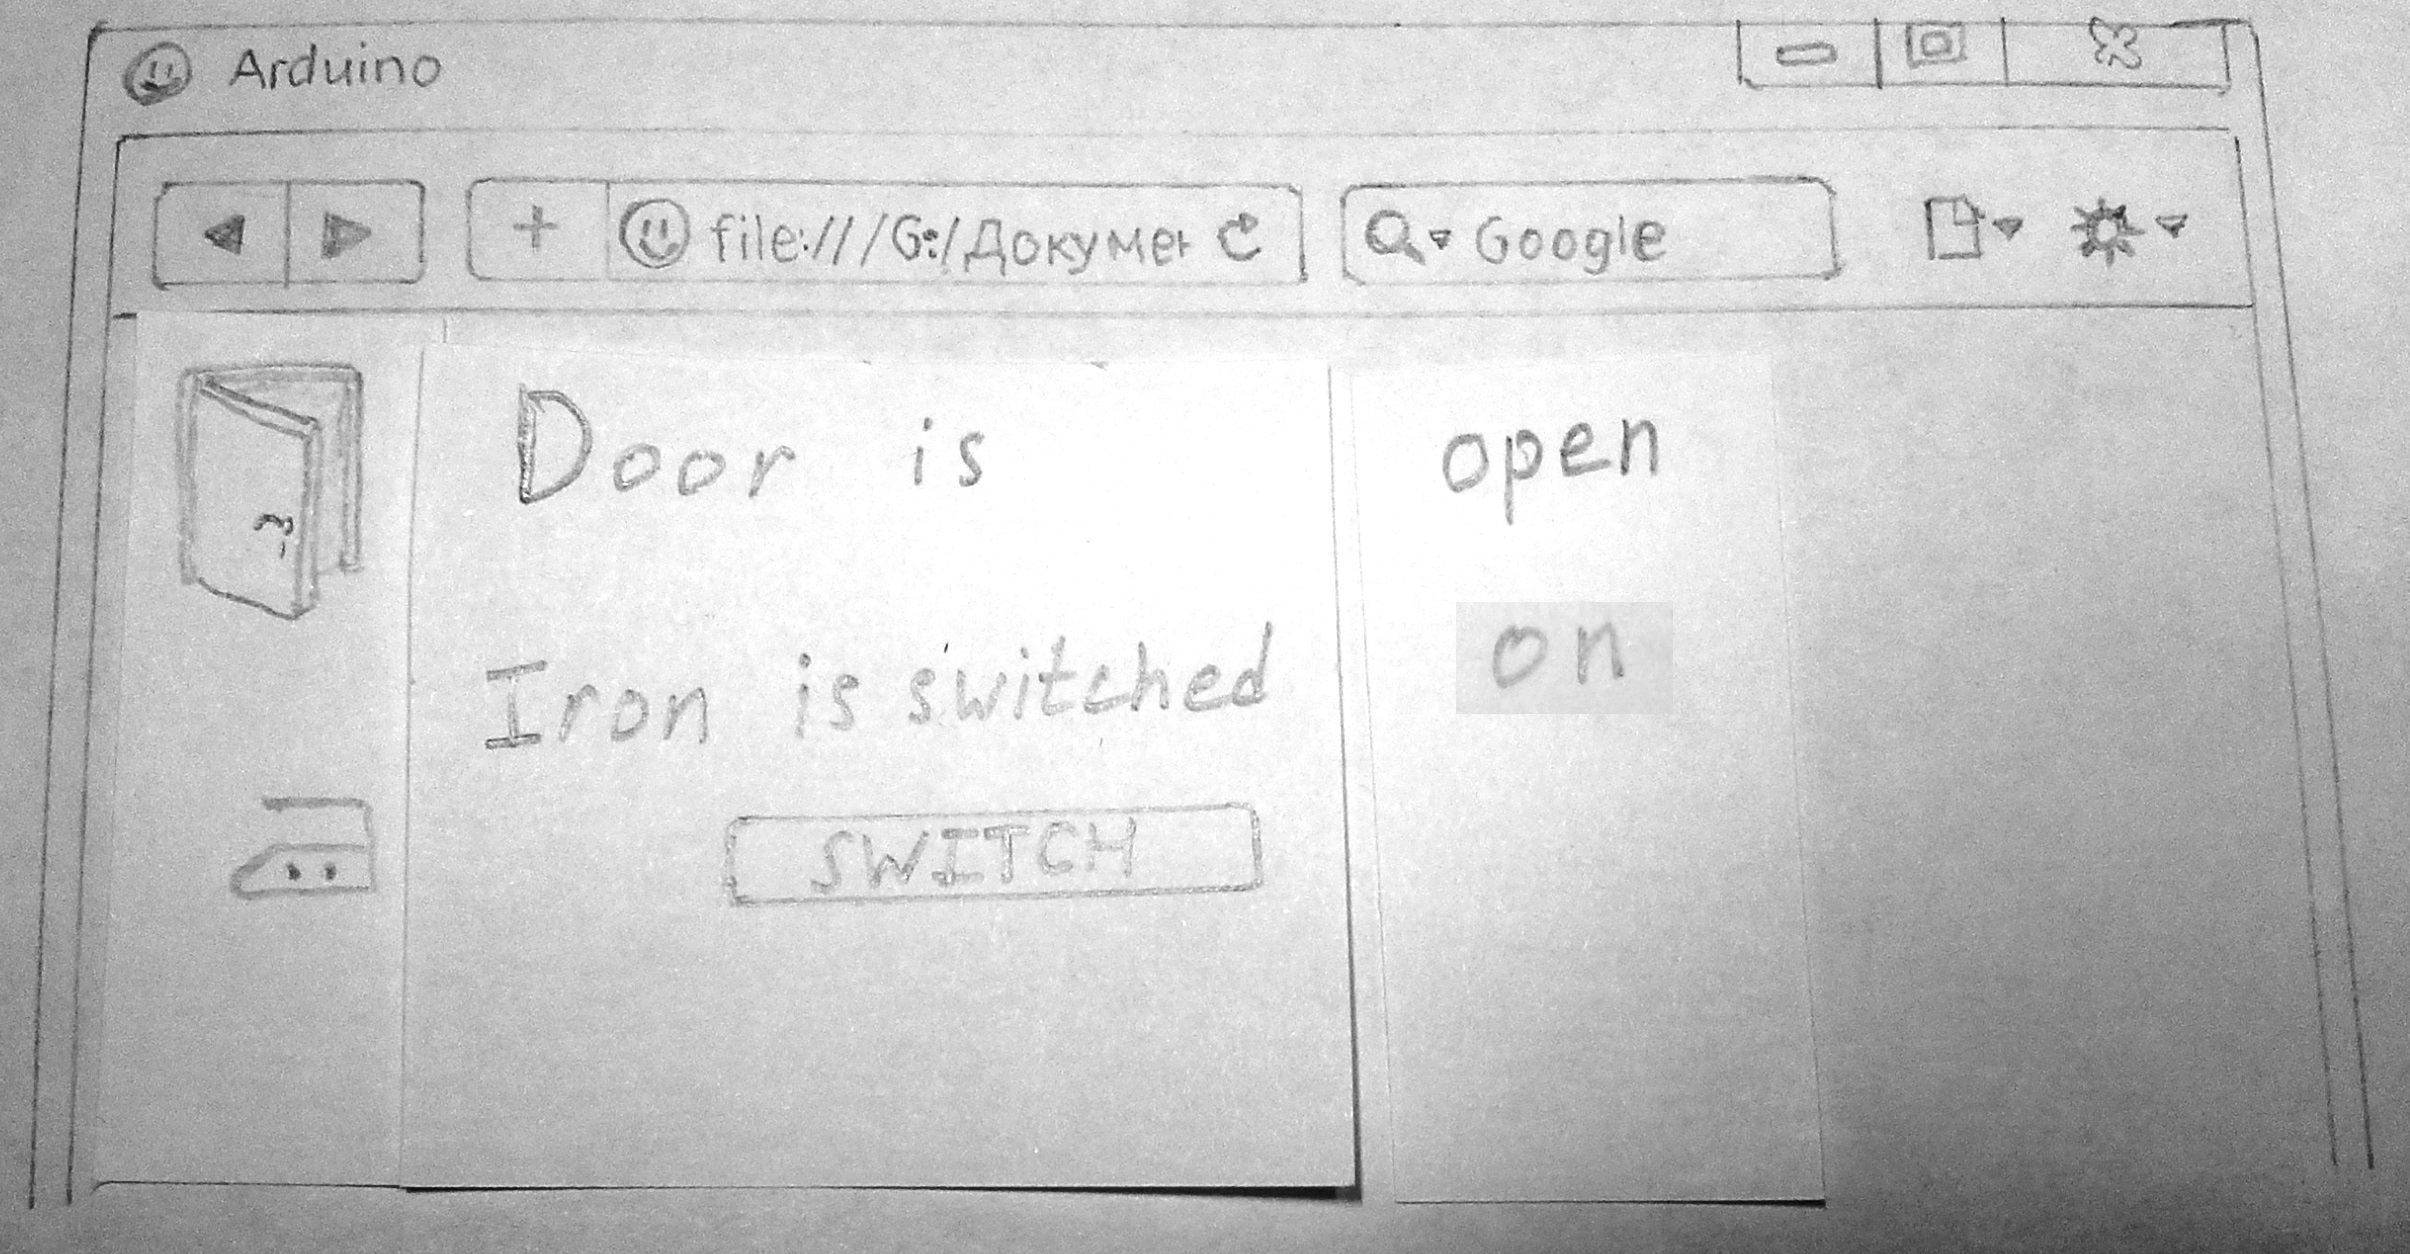 Arduino
+ file:///G:/Докумен Google
Door is open
Iron is switched on
SWITCH